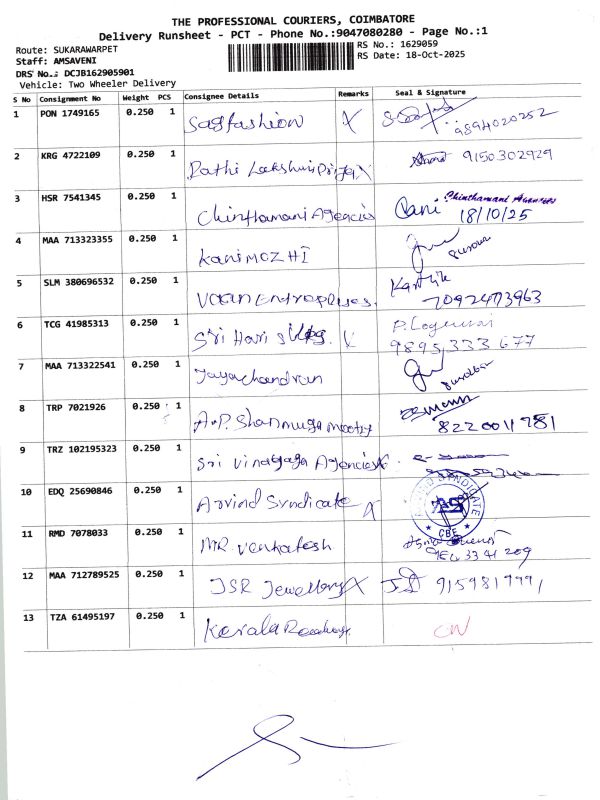 THE PROFESSIONAL COURIERS, COIMBATORE
Delivery Runsheet - PCT - Phone No.:9047080280 - Page No.:1
Route: SUKARAWARPET
RS No.: 1629059
Staff: AMSAVENI
RS Date: 18-Oct-2025
DRS No.: DCJB162905901
Vehicle: Two Wheeler Delivery
S No Consignment No Weight PCS Consignee Details Remarks Seal & Signature
1 PON 1749165 0.250 1 Sagfashion X 9894020252
2 KRG 4722109 0.250 1 Rathi Lakshmi Priya X 9150302929
3 HSR 7541345 0.250 1 Chinthamani Agencies Rani Chinthamani Agencies
18/10/25
4 MAA 713323355 0.250 1 KANIMOZHI
5 SLM 380696532 0.250 1 Karthik
7092473963
6 TCG 41985313 0.250 1 Sri Hari
9895333677
7 MAA 713322541 0.250 1 Jayachandran
8 TRP 7021926 0.250 1 A.P. Shanmuga
8220011981
9 TRZ 102195323 0.250 1 Sri Vinayaga Agencies X
10 EDQ 25690846 0.250 1 Arvind Syndicate X SYNDICATE
AS
CBE
11 RMD 7078033 0.250 1 MR. Venkatesh
12 MAA 712789525 0.250 1 JSR Jewellery X
13 TZA 61495197 0.250 1 Kerala CN